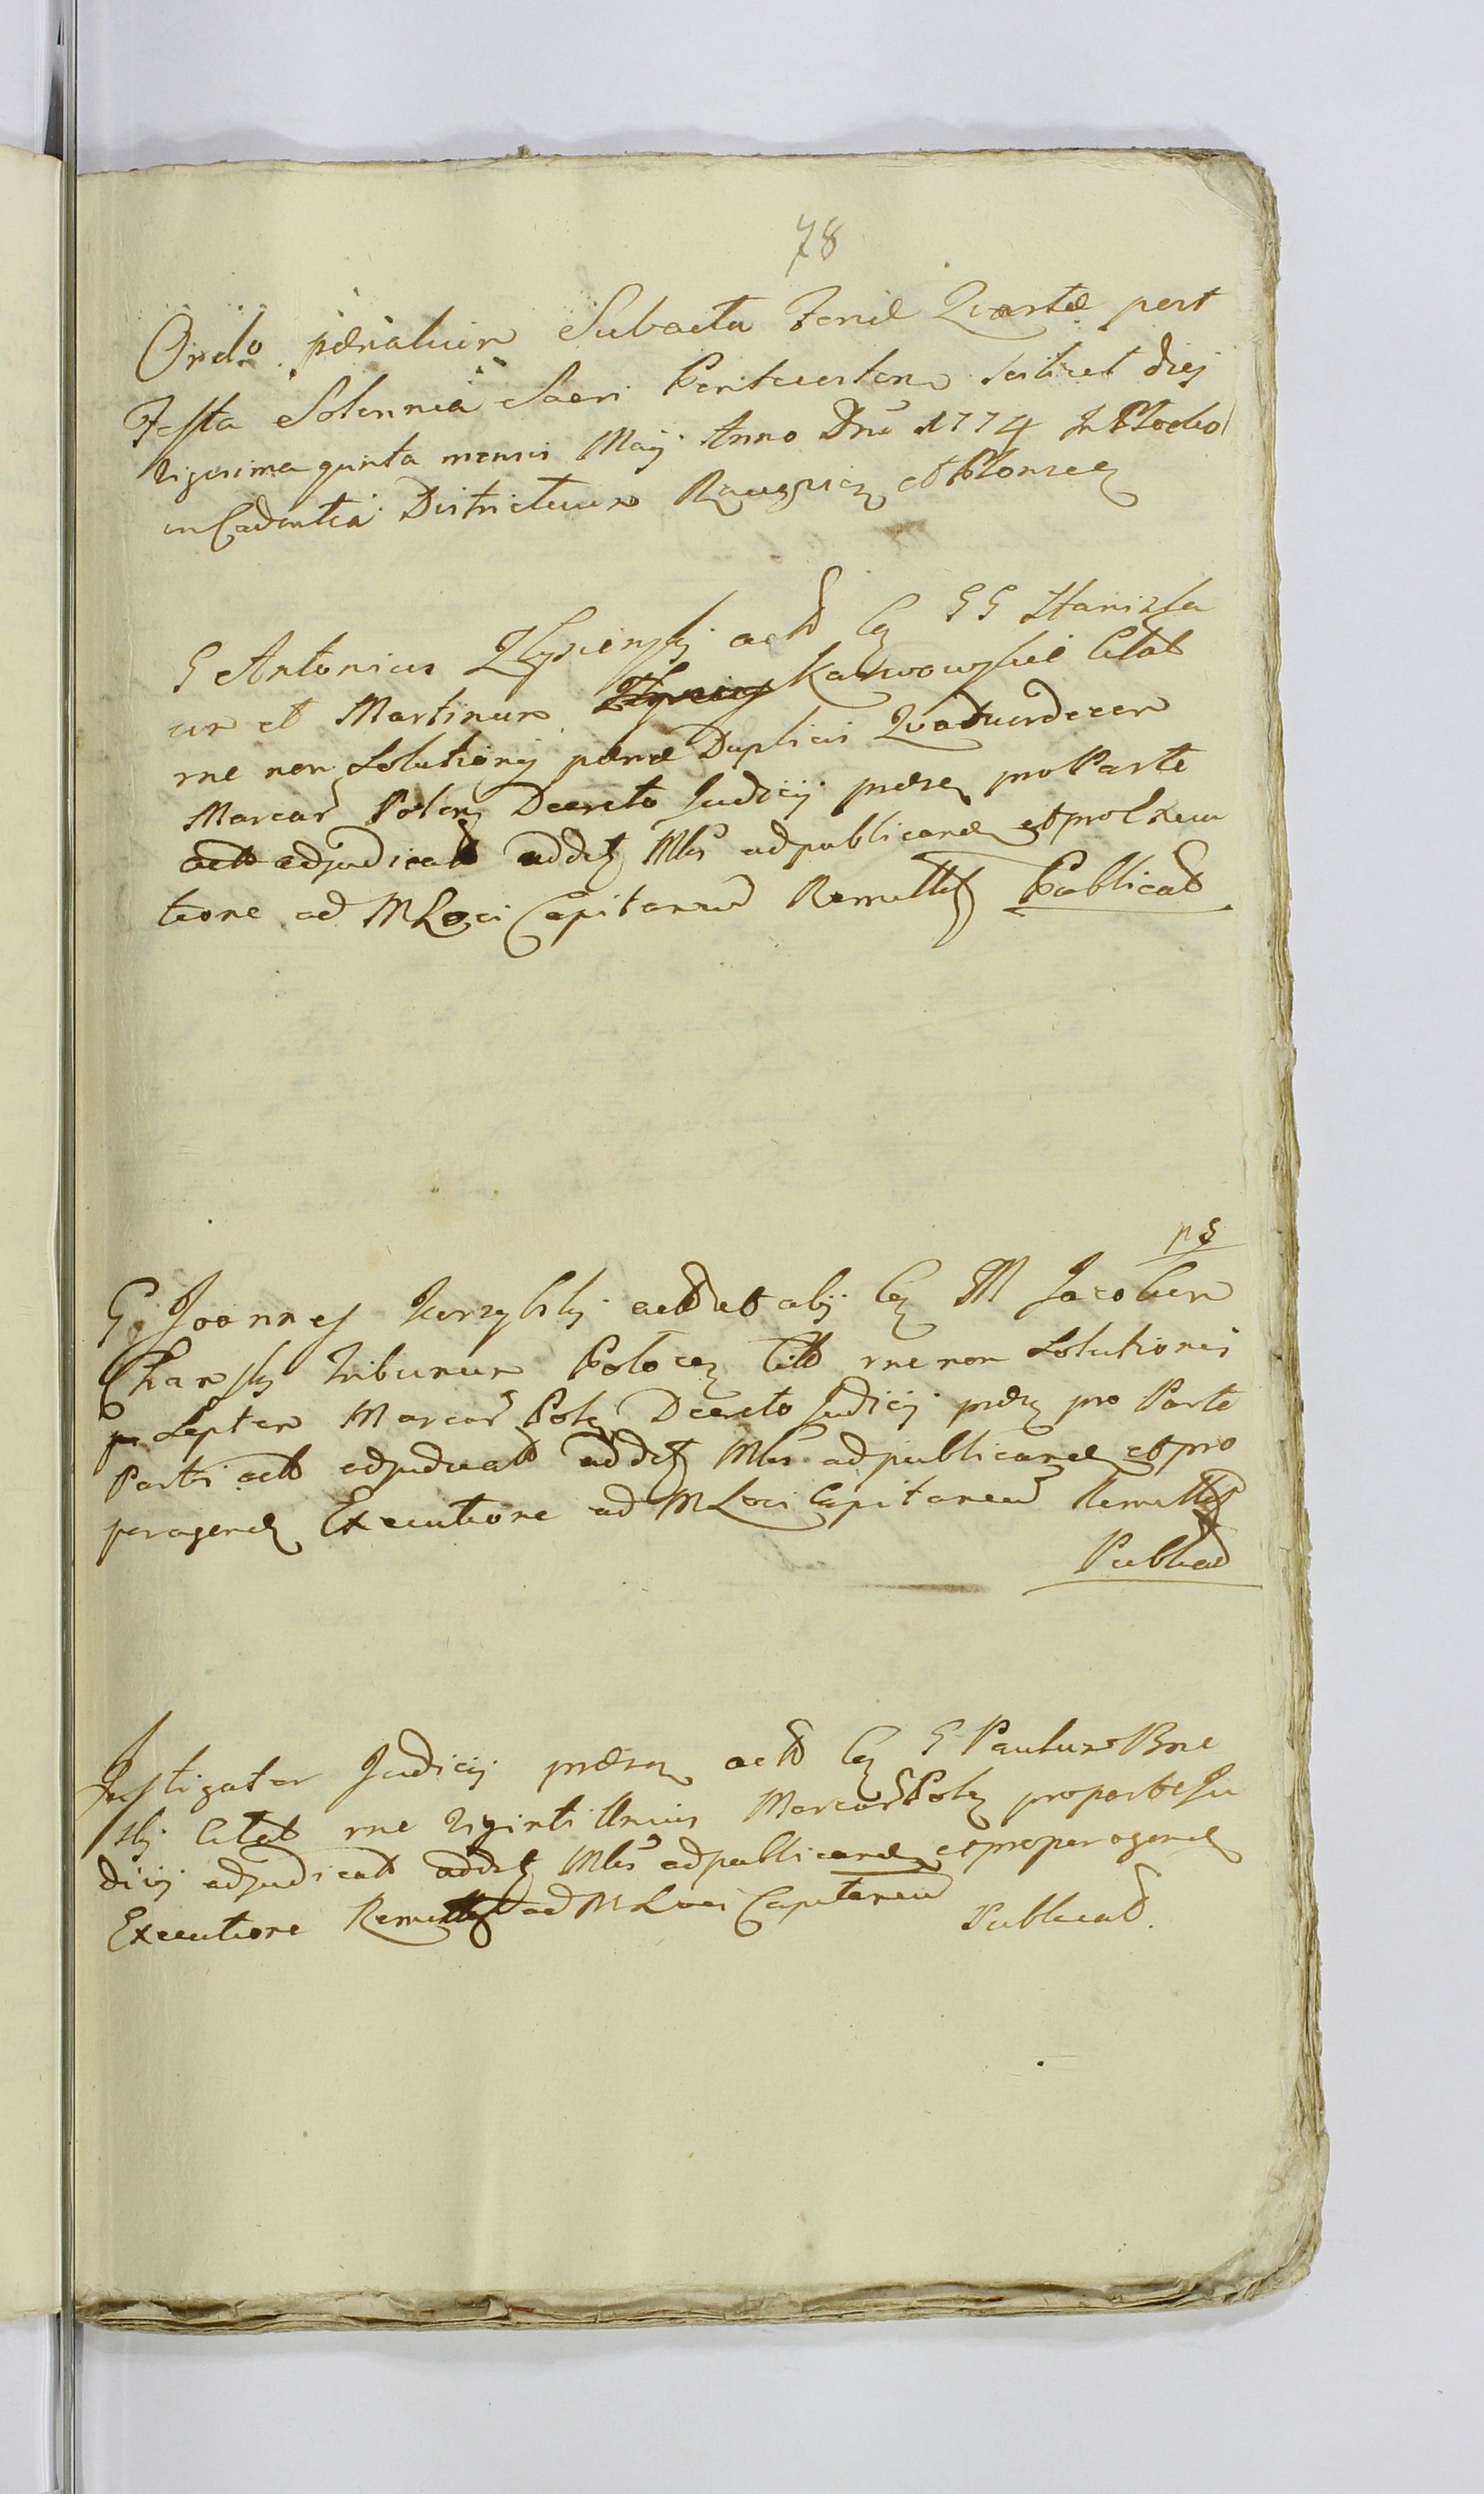 78
Ordo pænalium Subacta Feriæ Quartæ post
Festa Solennia Sacri Pentecosten scilicet diej
vigesima quinta mensis Maij Anno Dnī 1774 In Plocko
in Cadentia Districtuum et Plonscen
G Antonius actō Cŋ GG Stanisla
um et Martinum Karwowskie Citat
rne non Solutionis pænæ Duplicis Quatuordecem
Marcar Polon Decreto Judicij præsen pro Parte
act adjudicat Mbs ad publicand et pro Execu
tione ad M Loci Capitaneum Remitt Publicat
ps
G Joannes actō et alij Cŋ M Jacobum
Tribunum Citt rne non Solutionis
Septem Marcar Pol Decreto Judicij præs pro Parte
Partis act adjudicat Mbs ad publicand et pro
peragend Executione ad M Loci Capitaneum Remitt
Publicat
Instigator Judicij præsen actō Cŋ G Paulum
Citat rne Viginti Unius Marcar Pol pro parte Ju
dicij adjudicat Mbs ad publicand et pro peragend
Executione Remitt ad M Loci Capitaneum Publicat.